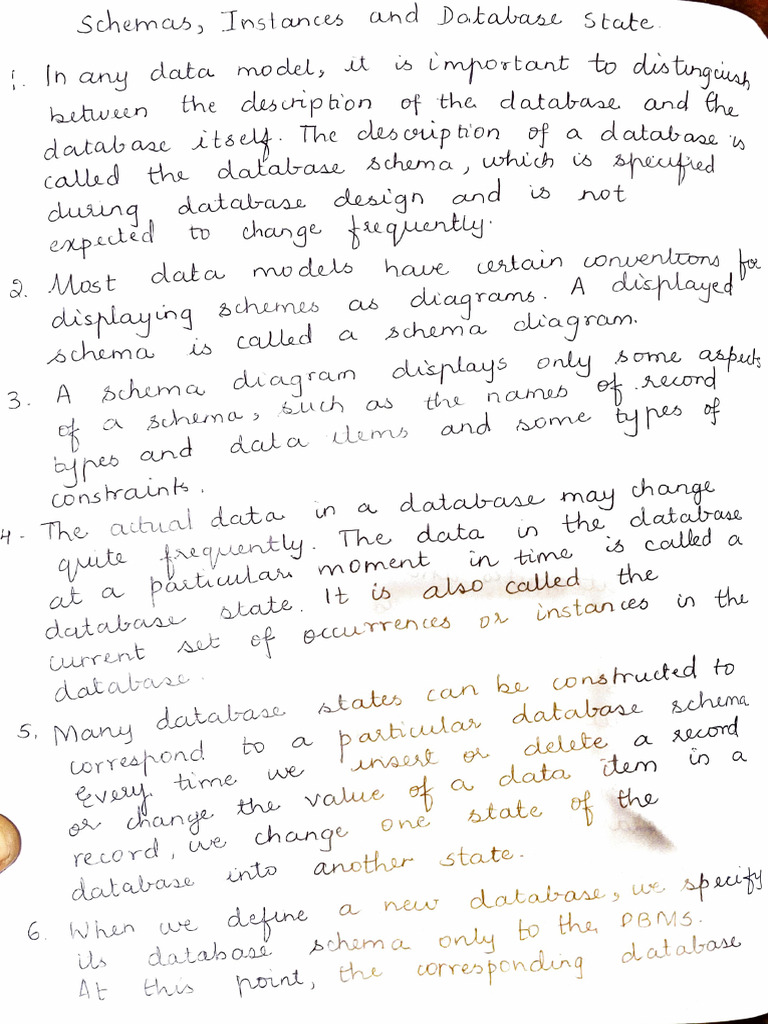 Schemas, Instances and Database State.
1. In any data model, it is important to distinguish
between the description of the database and the
database itself. The description of a database is
called the database schema, which is specified
during database design and is not
expected to change frequently.
2. Most data models have certain conventions for
displaying schemes as diagrams. A displayed
schema is called a schema diagram.
3. A schema diagram displays only some aspects
of a schema, such as the names of record
types and data items and some types of
constraints.
4. The actual data in a database may change
quite frequently. The data in the database
at a particular moment in time is called a
database state. It is also called the
current set of occurrences or instances in the
database.
5. Many database states can be constructed to
correspond to a particular database schema
Every time we insert or delete a record
or change the value of a data item in a
record, we change one state of the
database into another state.
6. When we define a new database, we specify
its database schema only to the DBMS.
At this point, the corresponding database